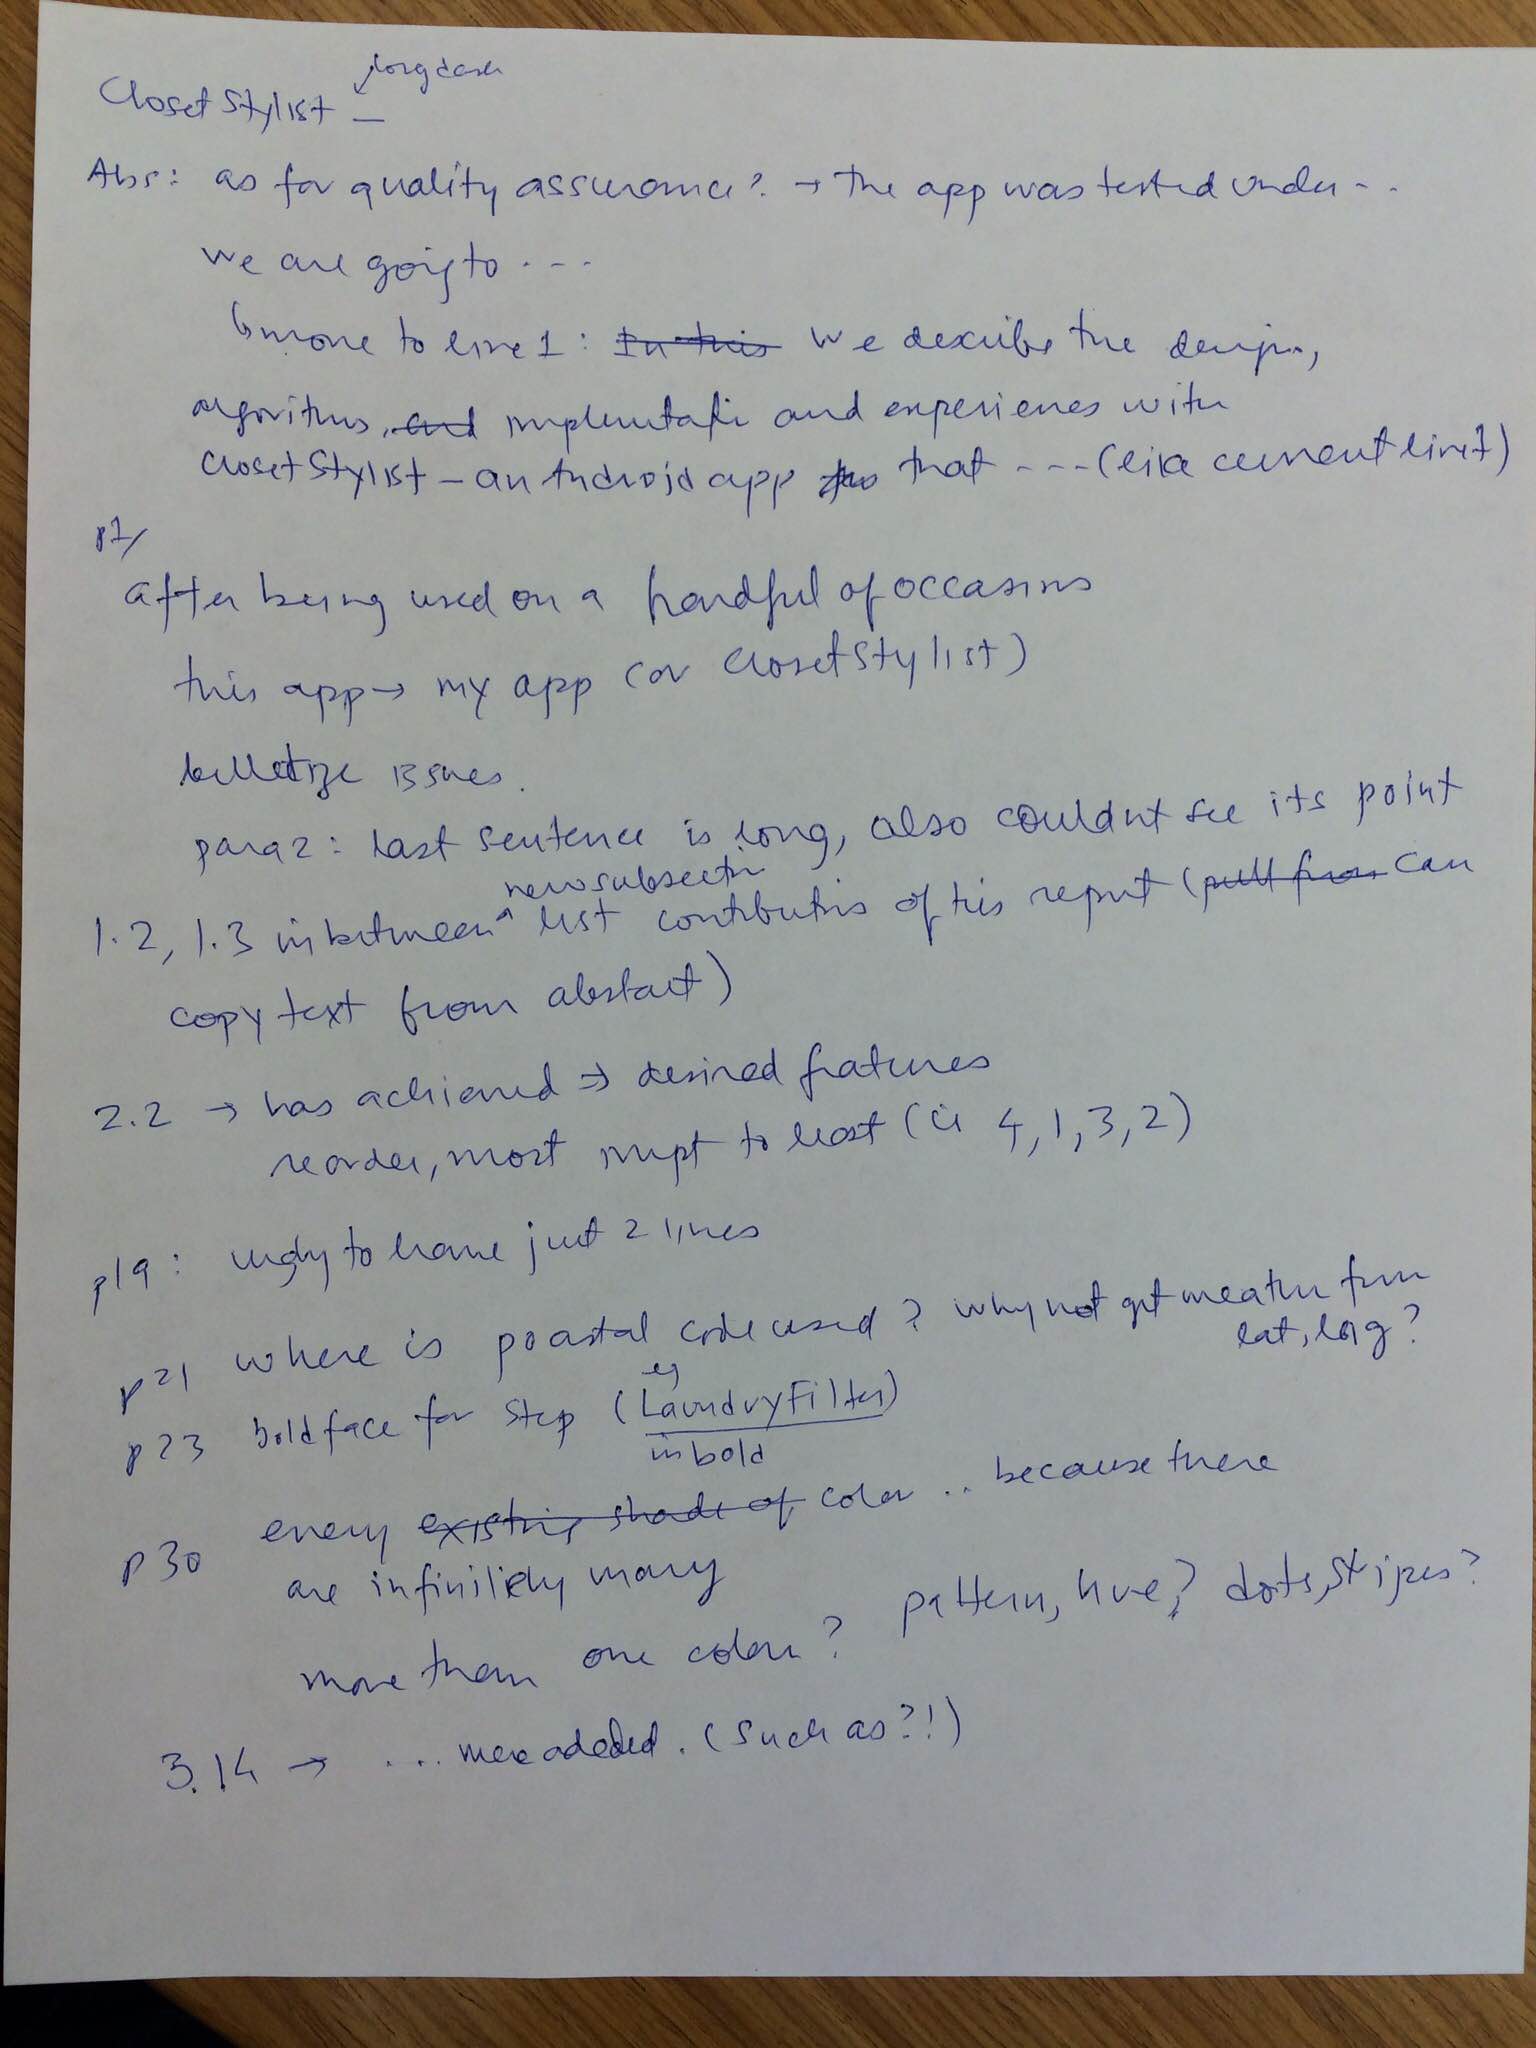 long dash
ClosetStylist —
Abs: as for quality assurance? → The app was tested under ..
we are going to ....
↳ move to line 1: In this we describe the design,
algorithms, and implementati and experiences with
ClosetStylist – an Android app that ---- (like current line 1)
p1/
after being used on a handful of occasions
this app → my app (or ClosetStylist)
bulletize issues.
para 2: last sentence is long, also couldnt see its point
new subsectn
1.2, 1.3 in between ^ list contributns of this report (pull from can
copy text from abstact)
2.2 → has achieved ⇒ desired features
reorder, most impt to least (ie 4, 1, 3, 2)
p19: ugly to have just 2 lines
p21 where is poastal code used? why not get weather from
lat, lng?
eg
p23 boldface for step (LaundryFilter)
in bold
p30 every existing shade of color .. because there
are infinitiely many
more than one color? pattern, hue? dots, stripes?
3.14 → ... were added. (Such as?!)